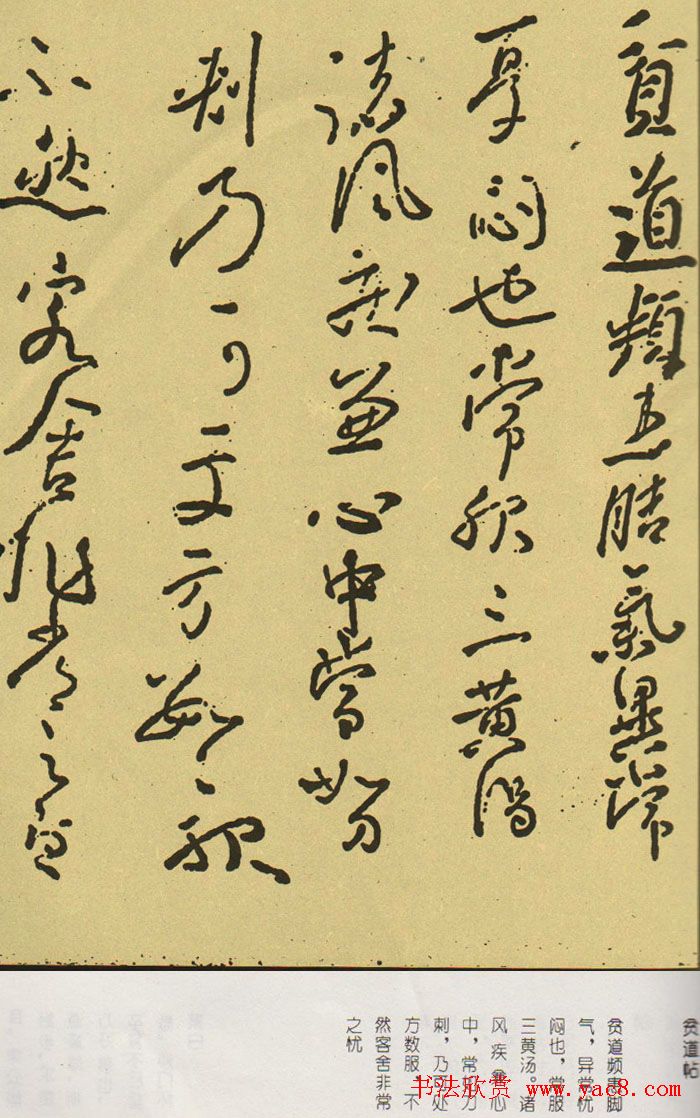 貧道頻患脚氣異常
憂悶也常服三黄湯
諸風疾兼心中常如刀
刺乃可處方數服
不然客舍非常之憂
贫道帖
贫道频患脚
气，异常忧
闷也，常服
三黄汤。诸
风疾兼心
中，常如刀
刺，乃可处
方数服，不
然客舍非常
之忧
书法欣赏 www.yac8.com